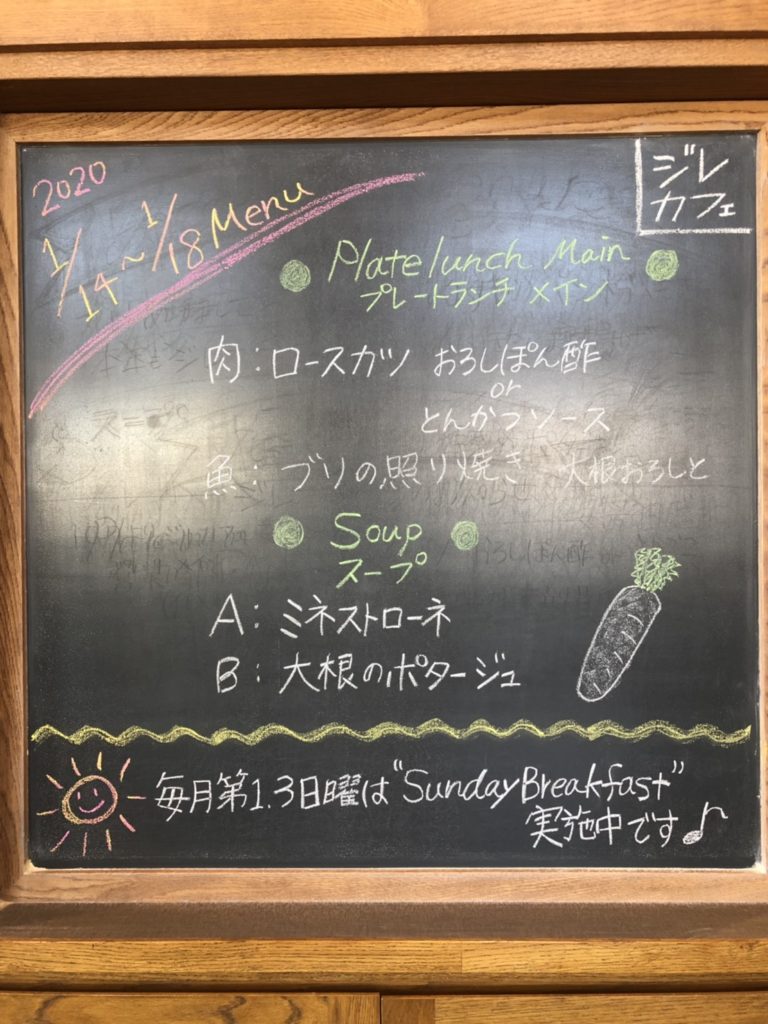 2020
1/14～1/18 Menu
ジレ
カフェ
Plate lunch Main
プレートランチ メイン
肉：ロースカツ おろしぽん酢
or
とんかつソース
魚：ブリの照り焼き 大根おろしと
Soup
スープ
A：ミネストローネ
B：大根のポタージュ
毎月第1.3日曜は"Sunday Breakfast"
実施中です♪